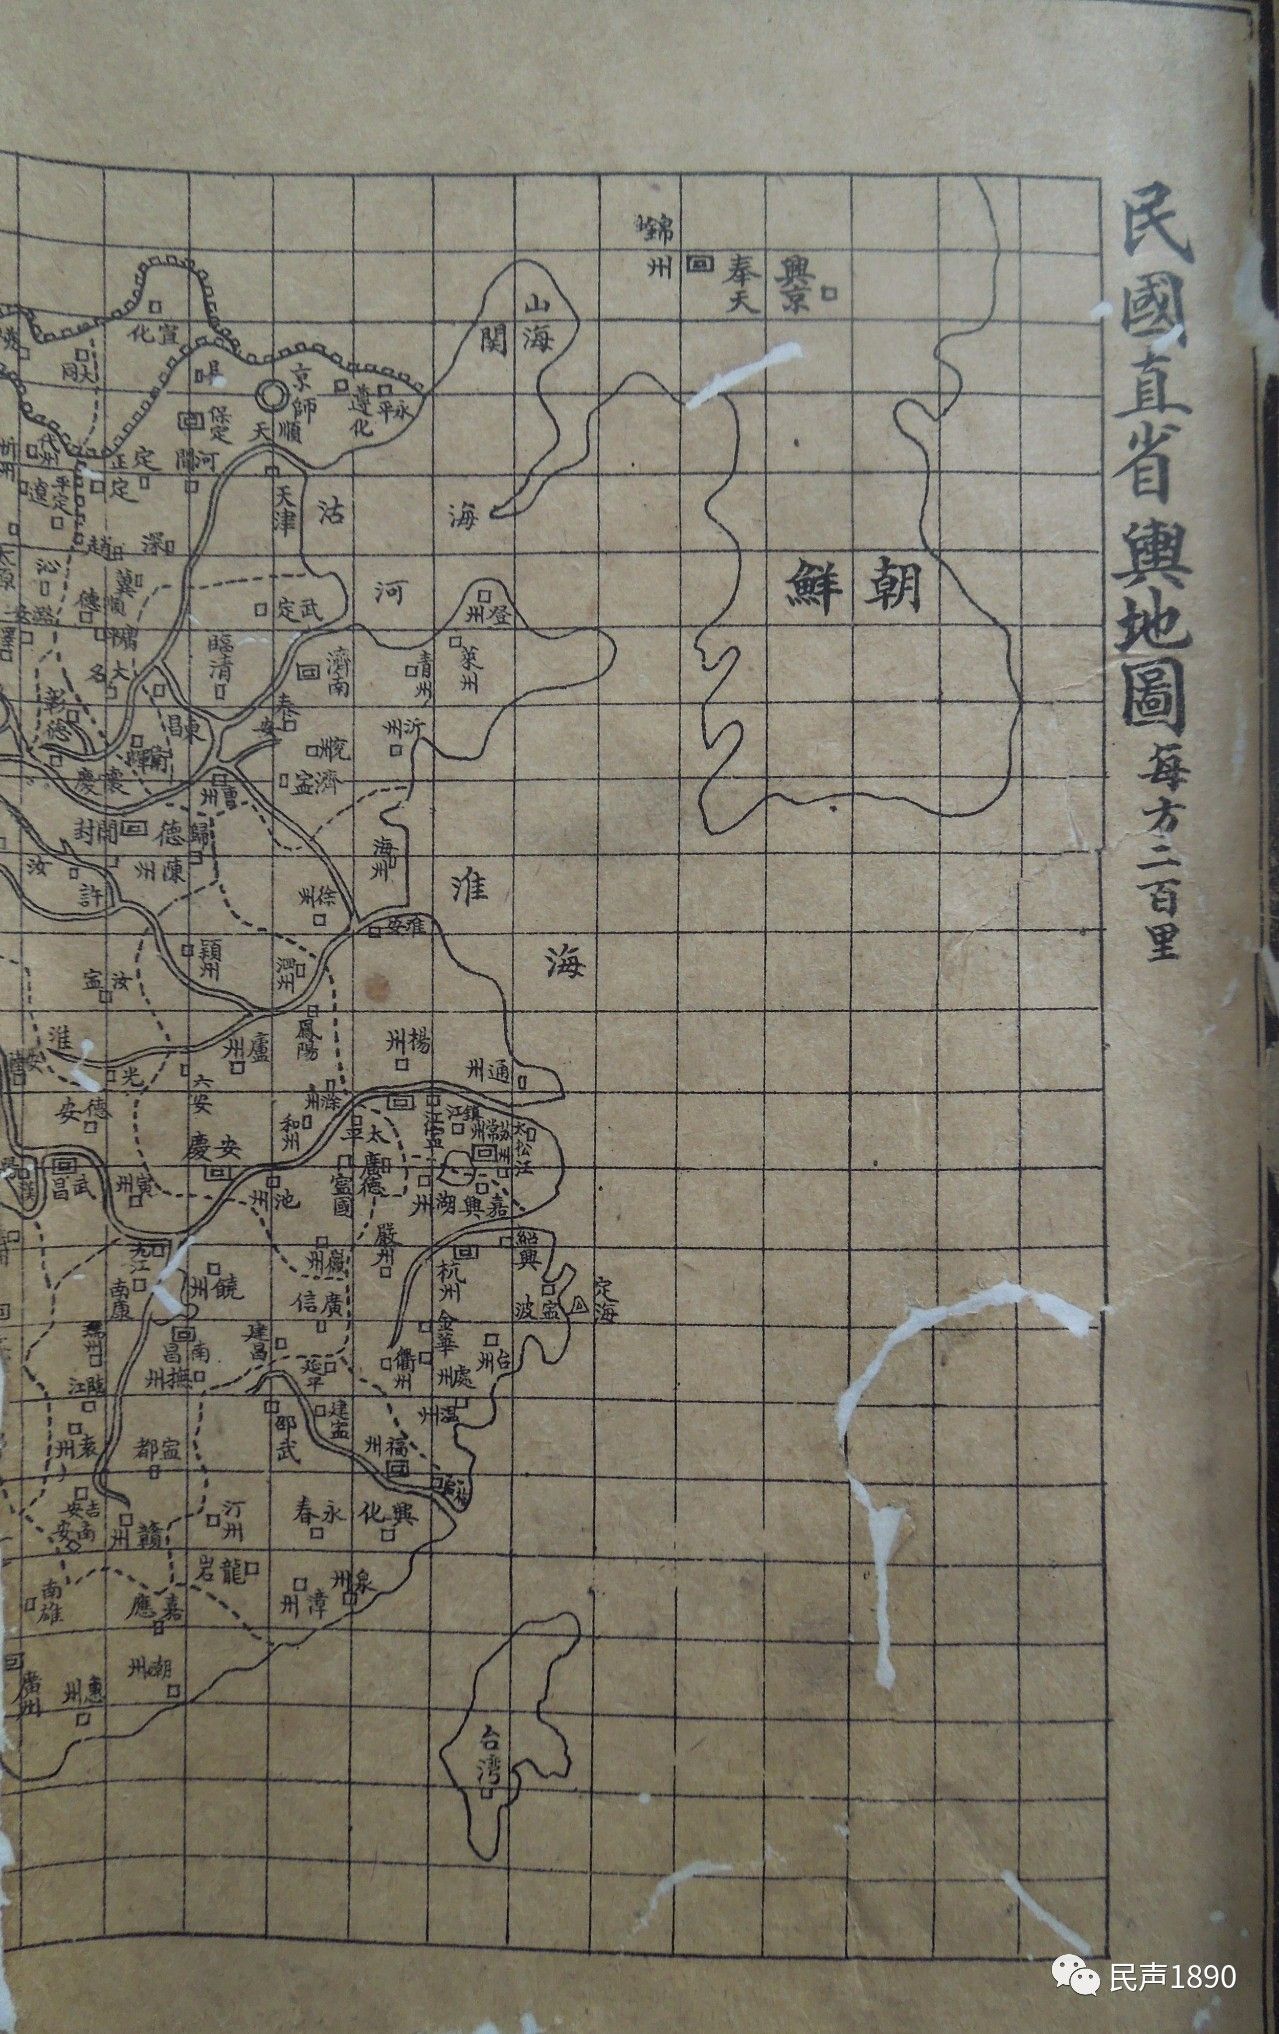 民國直省輿地圖 每方二百里
錦州
奉天
興京
山海関
朝鮮
宣化
大同
京師
順天
遵化
永平
保定
河間
正定
定
天津
沽
海
河
代州
平定
遼
趙
深
冀
沁
順德
武定
登州
萊州
青州
濟南
臨清
泰安
大名
東昌
沂州
兗州
濟寍
彰德
懷慶
曹州
開封
歸德
陳州
許
汝
海州
徐州
淮安
淮
海
潁州
泗州
汝寍
鳳陽
廬州
楊州
通州
淮
光
六安
滁州
和州
德安
安慶
太平
江寍
鎮江
常州
松江
太
廣德
寍國
池州
武昌
黃州
湖州
嘉興
嚴州
紹興
杭州
九江
南康
饒州
徽州
廣信
寍波
定海
金華
衢州
台州
處州
温州
瑞州
南昌
撫州
建昌
臨江
延平
建寍
邵武
袁州
寍都
福州
吉安
南安
贛州
汀州
永春
興化
龍岩
泉州
漳州
南雄
嘉應
潮州
惠州
廣州
台灣
民声1890